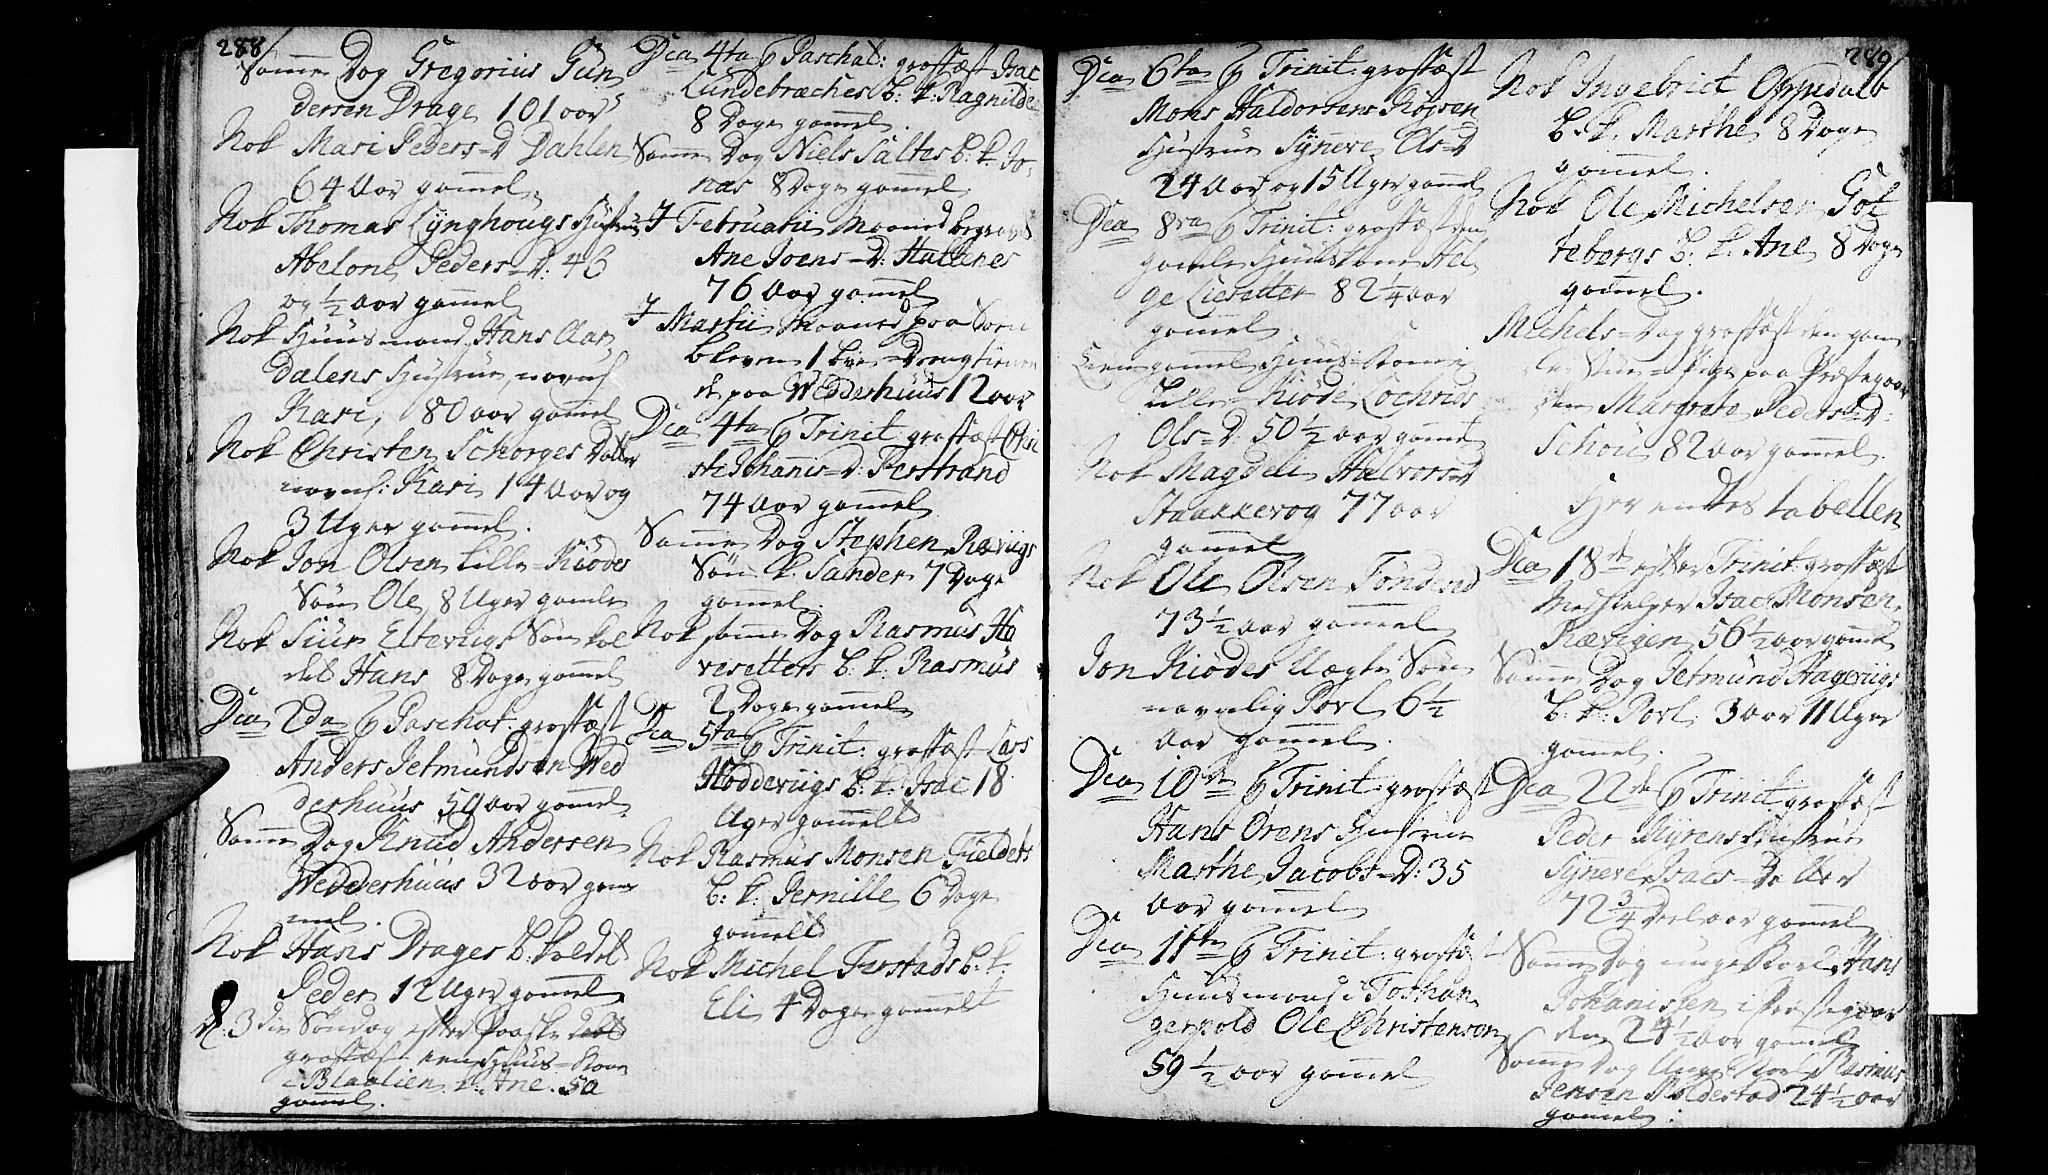 288
Samme Dag Gregorius Gun
dersen Drage 101 aar
Nok Mari Peders-D Dahlen
64 Aar gamel.
Nok Thomas Lÿnghougs Hustrue
Abelone Peders-D: 46
og 1/2 aar gamel
Nok Huusmand Hans Aar
dalens Hustrue, navnl
Kari, 80 aar gamel
Nok Christen Schorges Datter
navnl: Kari 14 Aar og
3 Uger gamel.
Nok Jon Olsen Lille-Kiödes
Sön Ole 8 Uger gamle
Nok Siur Eltevigs Sön kal
det Hans 8 Dage gamel
Dca 2da p Paschat. graffæst
Anders Jetmundsen Wed
derhuus 59 aar gamel.
Samme Dag Knud Andersen
Wedderhuus 32 aar gam
mel.
Nok Hans Drages b: kaldet
Peder 12 Uger gamel
D. 3die Söndag efter Paaske
graffæst een Huus-Kone
i Blaalien k: Ane. 50
gamel.
Dca 4ta p Paschat: graffæst Isac
Lundebræches b: k: Ragnilde
8 Dage gamel.
Samme Dag Niels Saltes b: k: Jo-
nas 8 Dage gamel
I Februarii Maaned begravet
Ane Joens-D: Hallenes
76 Aar gamel
I Martii Maaned paa Söen
bleven 1 Dreng
paa Wedderhuus 12 aar
Dca 4ta p Trinit graffæst
Johannis-D: Ferstrand
74 Aar gamel
Samme Dag Stephen Rævigs
Sön k. Sander 7 Dage
gamel.
Nok samme Dag Rasmus Ha
vesetters b. k. Rasmus
2 Dage gamel
Dca 5ta p Trinit: graffæst Lars
Hoddevigs b. k. Isac 18
Uger gamelt
Nok Rasmus Monsen Fieldets
b: k. Pernille 6 Dage
gamelt
Nok Michel Ferstads b: k:
Eli 4 Dage gamelt
289
Dca 6ta p Trinit: graffæst
Mons Haldorsens Röisen
Hustrue Sÿneve Ols-D
24 Aar og 15 Uger gamel
Dca 8va p Trinit: graffæst den
gamle Huuskone Hel
ge Liesetter 82 1/4 aar
gamel.
Een gamel Huus-
Lille-Kiöde Lochrids
Ols-D: 50 1/2 aar gamel
Nok Magdeli Halvors-D
Staakkevog 77 aar
gamel
Nok Ole Olsen Tonderd
73 1/2 aar gamel
Jon Kiödes Uægte Sön
navnlig Povl 6 1/2
aar gamel.
Dca 10de p Trinit: graffæst
Hans Örens Hustrue
Marthe Jacobs-D: 35
aar gamel
Dca 11te p Trinit: graffæst
Huusmand i
Ole Christenson
59 1/2 aar gamel
Nok Ingebrict Oppedals
b. k. Marthe 8 Dage
gamel.
Nok Ole Michelsen Got
tebergs b. k. Ane 8 Dage
gamel.
Michels-Dag graffæst den gam
le Pige paa Præstegaar
den Margrete Peders-D:
Schou 82 aar gamel.
Her endtes tabellen
Dca 18de efter Trinit: graffæst
Medhielper Isac Monsen
Rævigen 56 1/2 aar gamel
Samme Dag Jetmund Hagevigs
b. k: Povl. 3 aar 11 Uger
gamel.
Dca 22de p Trinit graffæst
Peder Mÿrens Hustrue
Sÿneve Isacs-Datter
72 3/4 Deel aar gamel
Samme Dag unge Karl Hans
Johanisten i Præstegaar
den 24 1/2 aar gamel
Samme Dag Unge Karl Rasmus
Jensen Noldestad 24 1/2 aar
gamel.